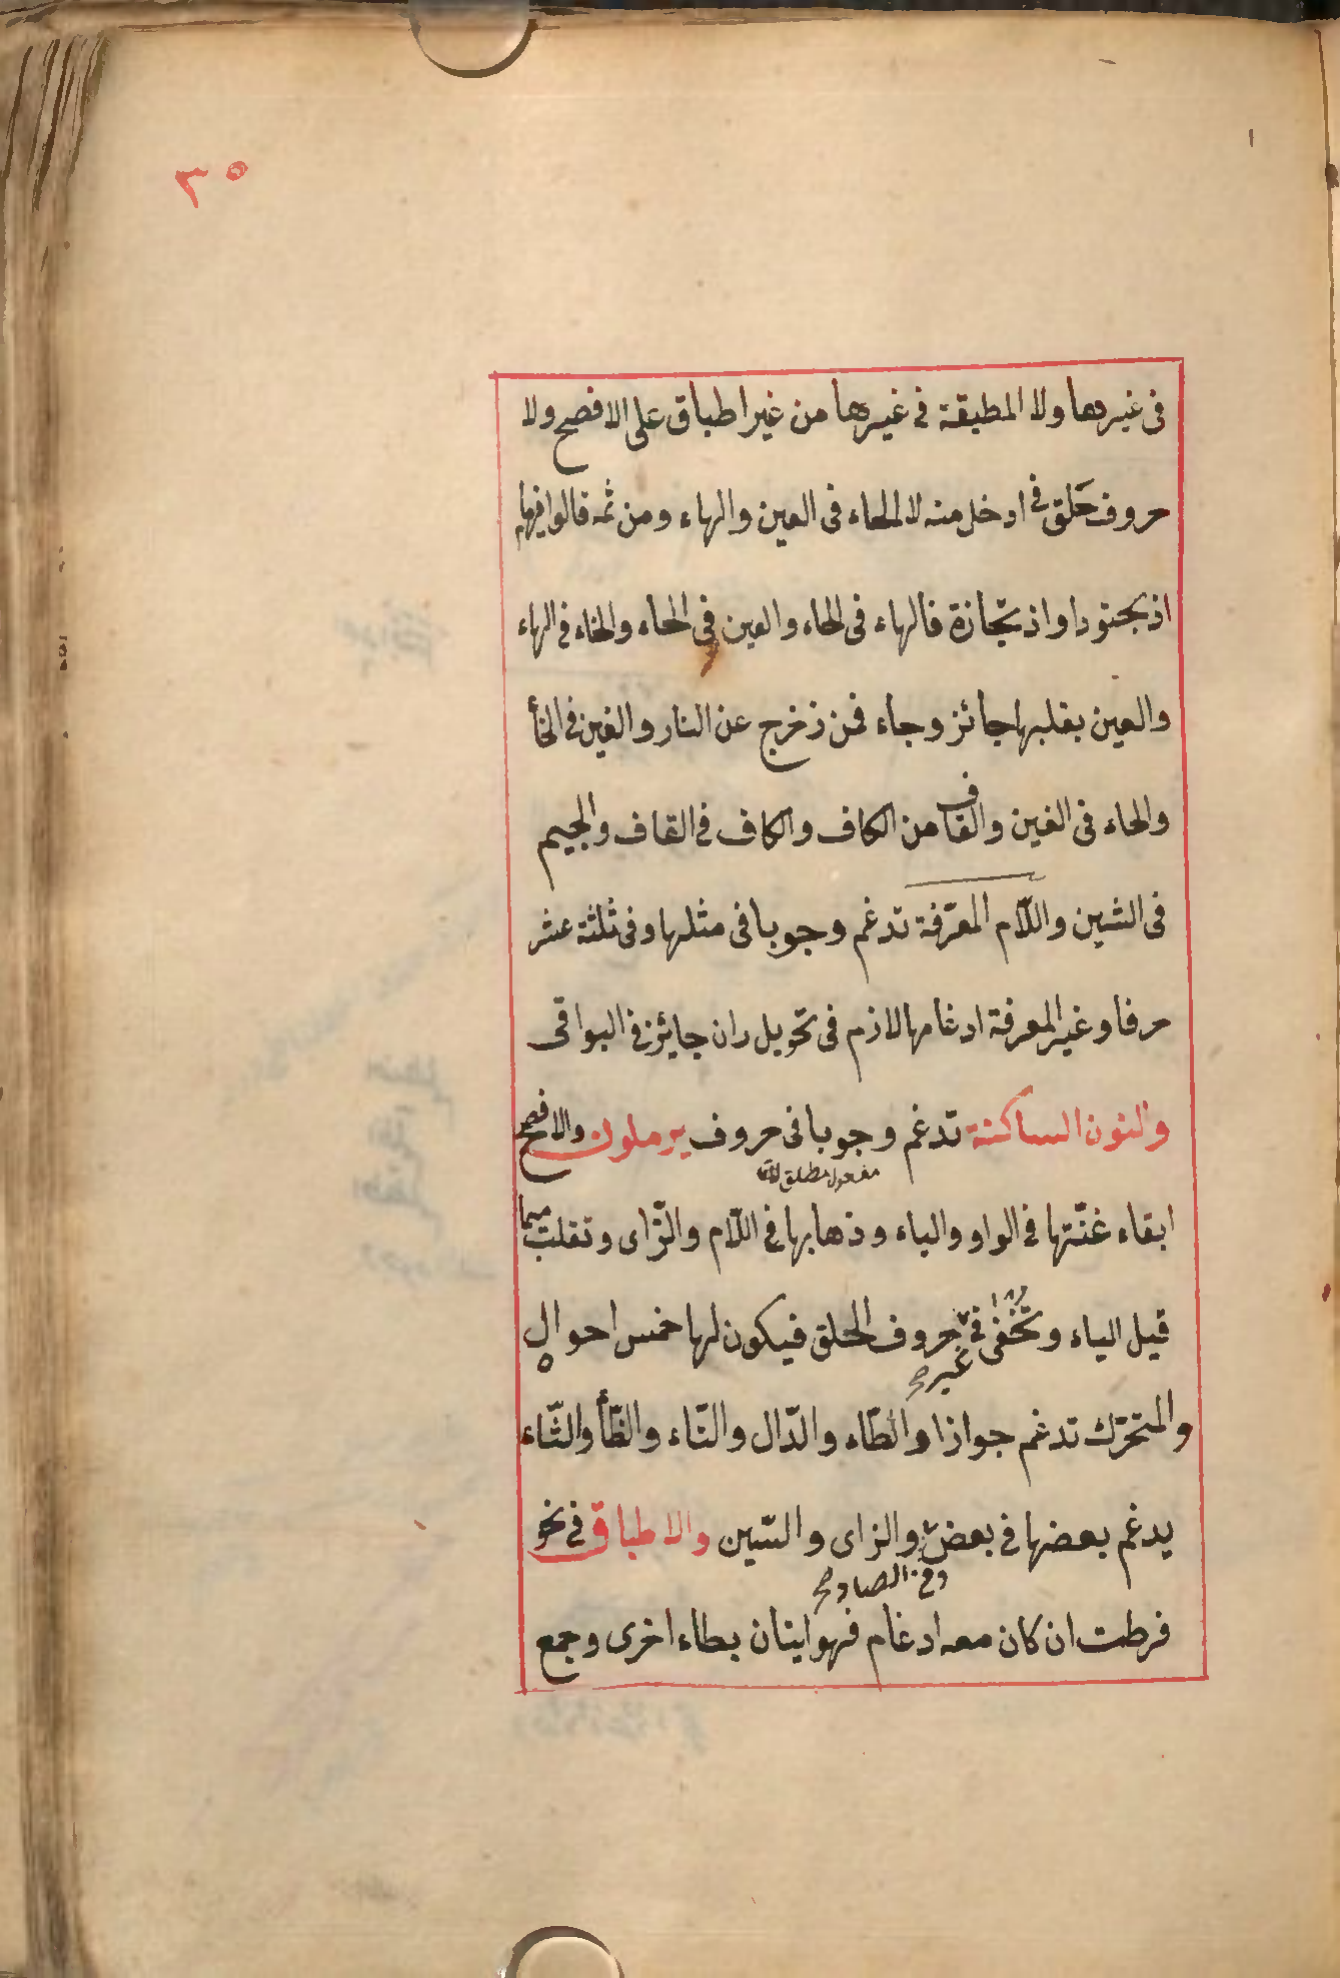 ٣٥
فى غيرها ولا المطبقة فى غيرها من غير اطباق على الافصح ولا
حروف حلق فى ادخل منه لا الحاء فى العين والهاء ومن ثمه قالوا فيهما
اذبحتودا واذبحّازة فالهاء فى الحاء والعين فى الحاء والحاء فى الهاء
والعين بقلبها جائز وجاء فمن زخرج عن النار والغين فى الخأ
والخاء فى الغين والقاف من الكاف والكاف فى القاف والجيم
فى الشين واللّام المعرّفة تدغم وجوبا فى مثلها وفى ثلثة عشر
حرفا وغير المعرفة ادغامها لازم فى نحو بل ران جايئز فى البواقى
والنون الساكنة تدغم وجوبا فى حروف يرملون والافصح
مفعول مطلق
ابقاء غنّتها فى الواو والياء وذهابها فى اللّام والرّاى وتقلب ميما
قبل الياء وتخفى فى حروف الحلق فيكون لها خمس احوال
غير صح
والمتحرّك تدغم جوازا والطّاء والدّال والتّاء والظّأ والثّاء
يدغم بعضها فى بعض والزاى والسّين والاطباق فى نحو
وفى الصاد صح
فرطت ان كان معه ادغام فهو ايتان بطاء اخرى وجمع